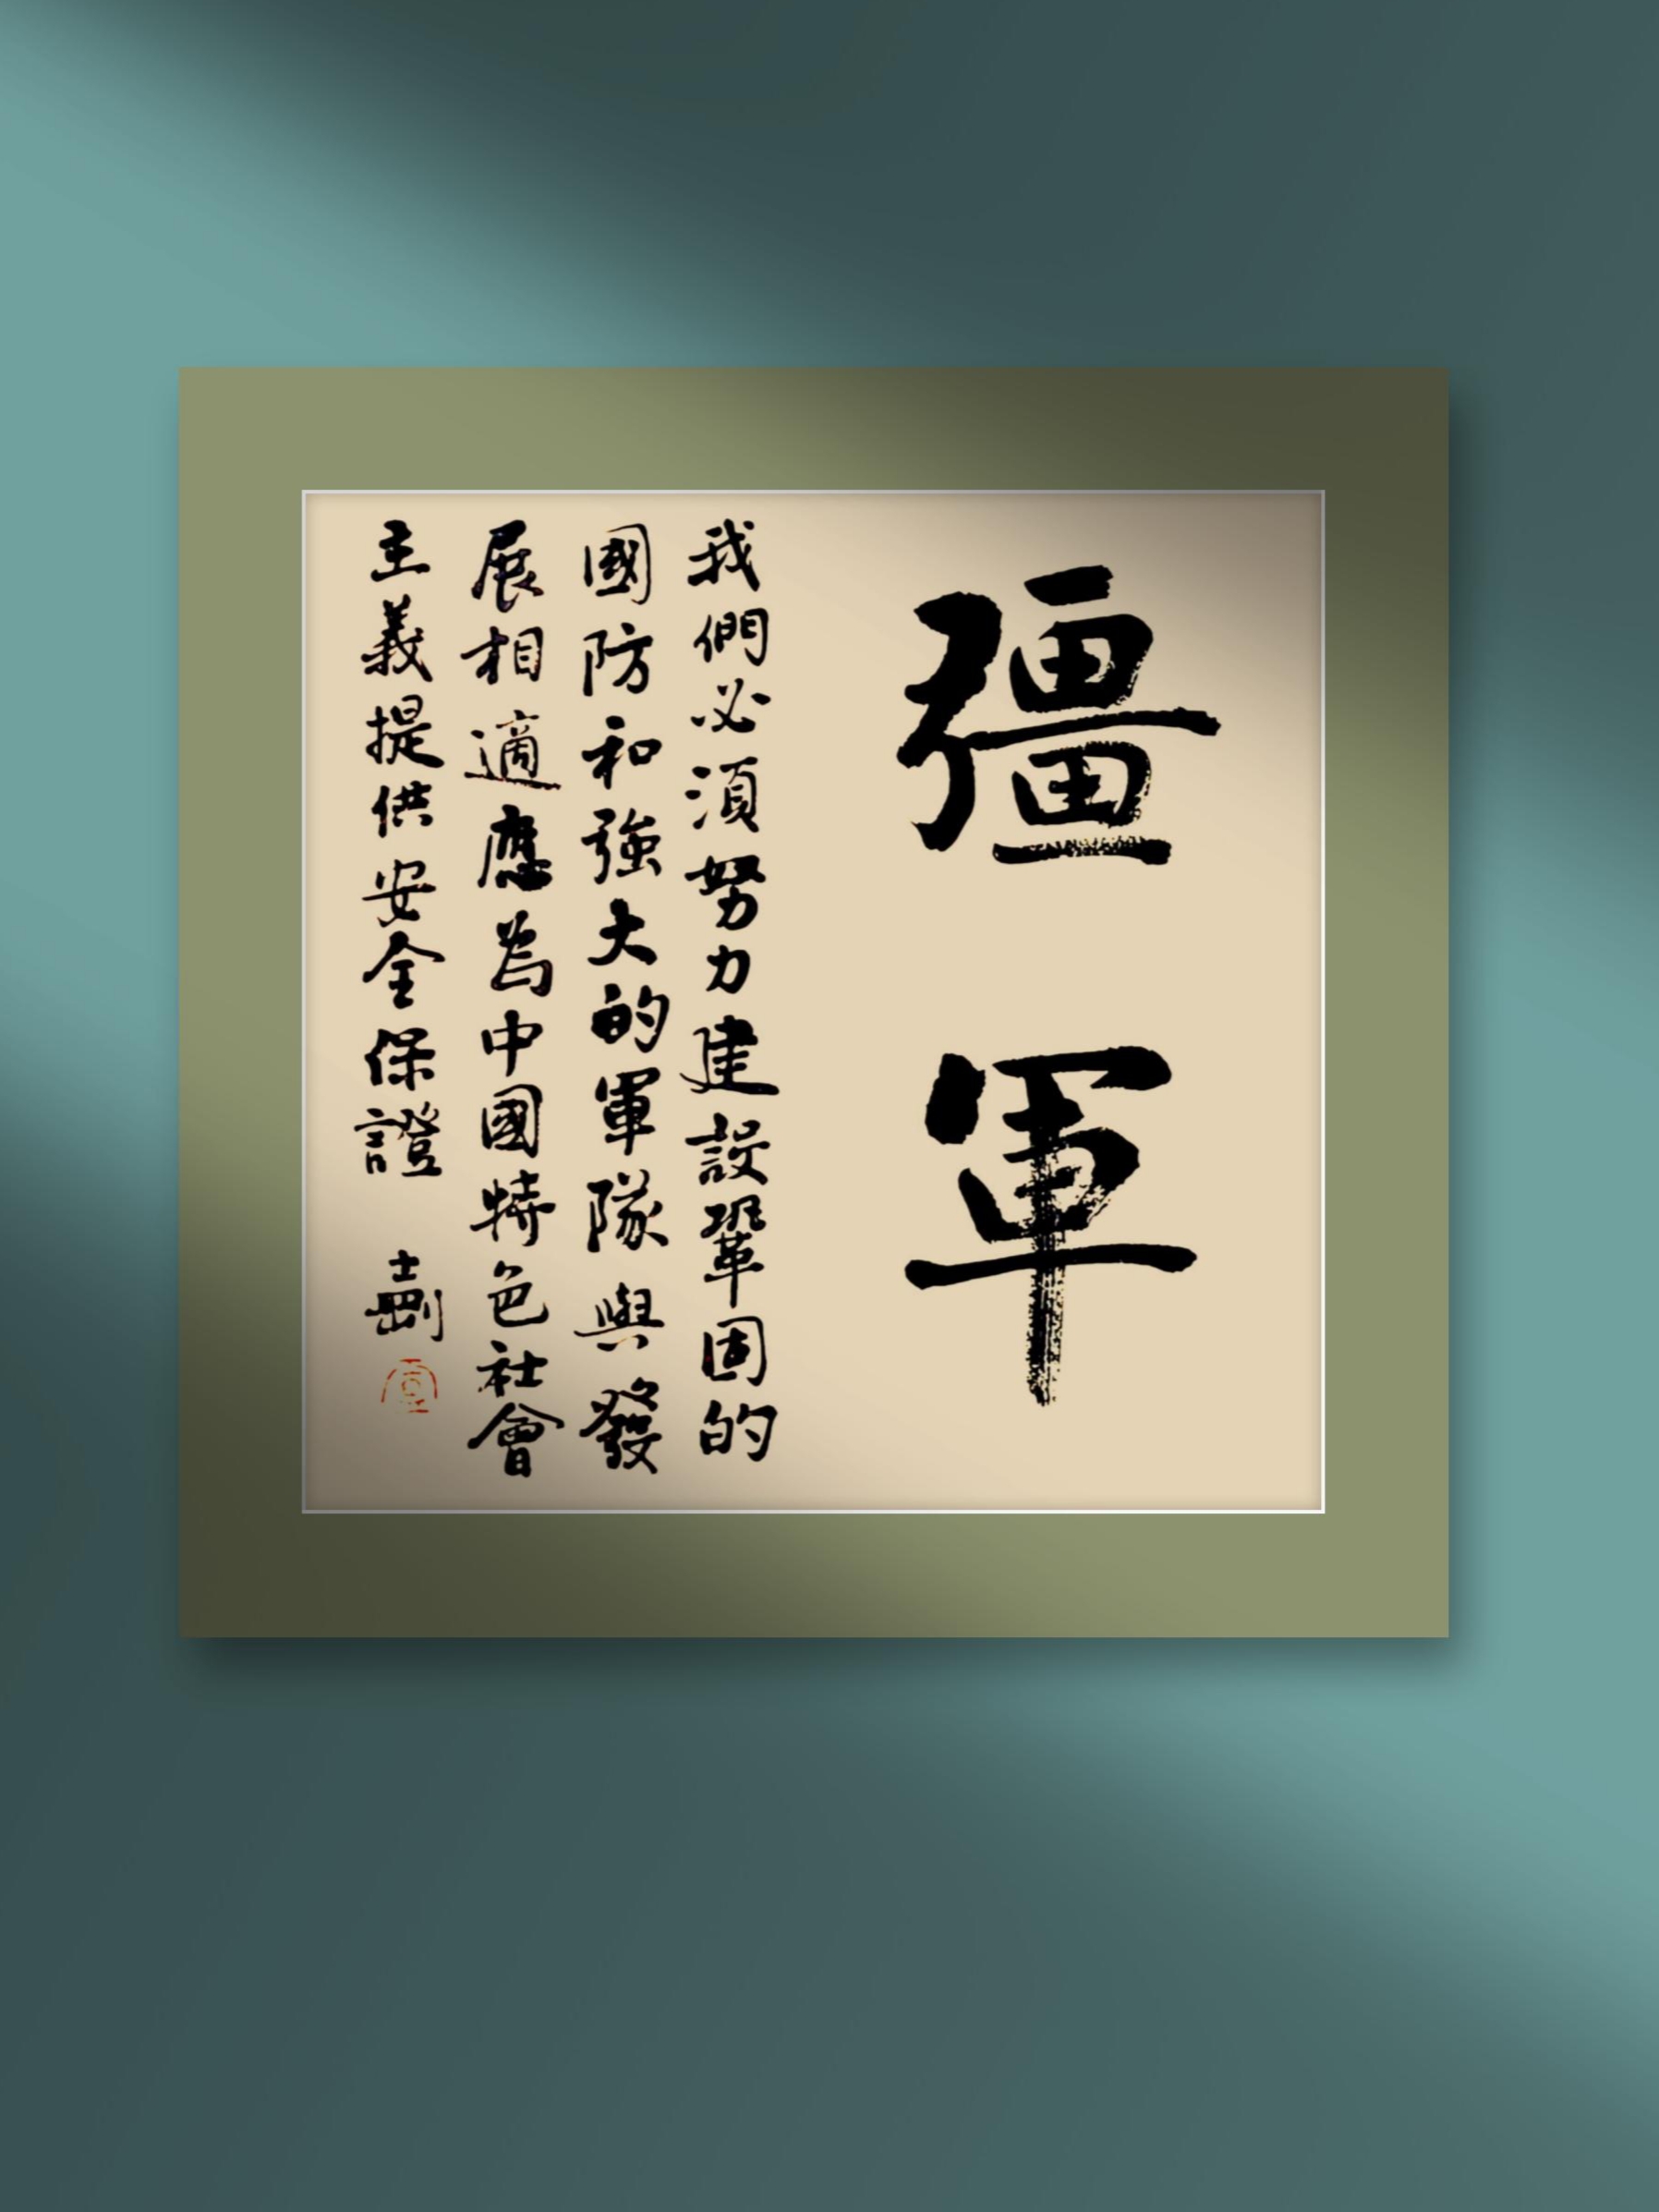 彊軍
我們必須努力建設鞏固的
國防和強大的軍隊與發
展相適應為中國特色社會
主義提供安全保證